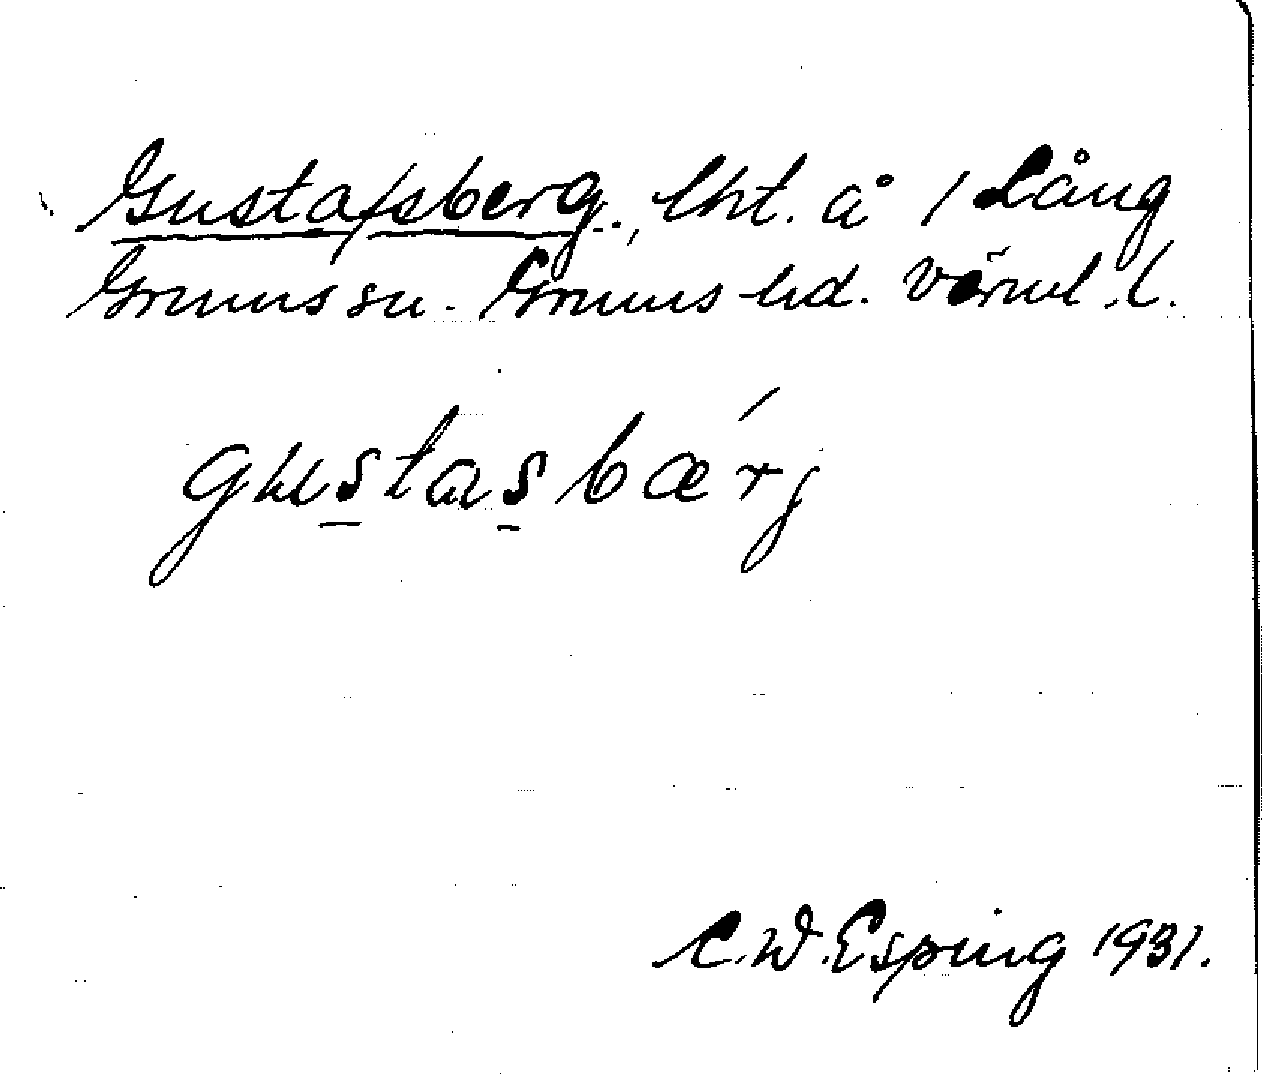 Gustafsberg., lht. å 1 Lång
Grums sn. Grums hd. Värml. l.
gustasbærj
C.W. Esping 1931.